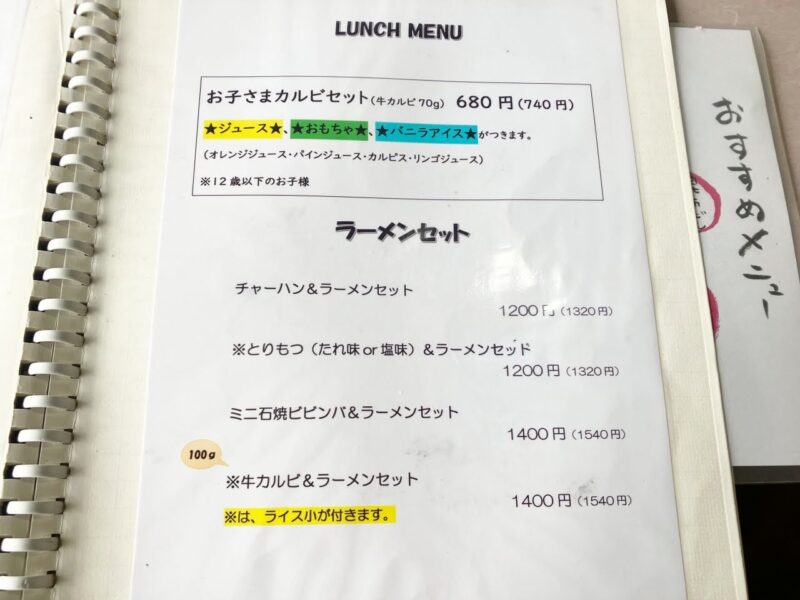 LUNCH MENU
お子さまカルビセット(牛カルビ70g) 680円(740円)
★ジュース★、★おもちゃ★、★バニラアイス★がつきます。
(オレンジジュース・パインジュース・カルピス・リンゴジュース)
※12歳以下のお子様
ラーメンセット
チャーハン＆ラーメンセット
1200円(1320円)
※とりもつ（たれ味or塩味）＆ラーメンセット
1200円(1320円)
ミニ石焼ビビンバ＆ラーメンセット
1400円(1540円)
100g
※牛カルビ＆ラーメンセット
1400円(1540円)
※は、ライス小が付きます。
おすすめメニュー